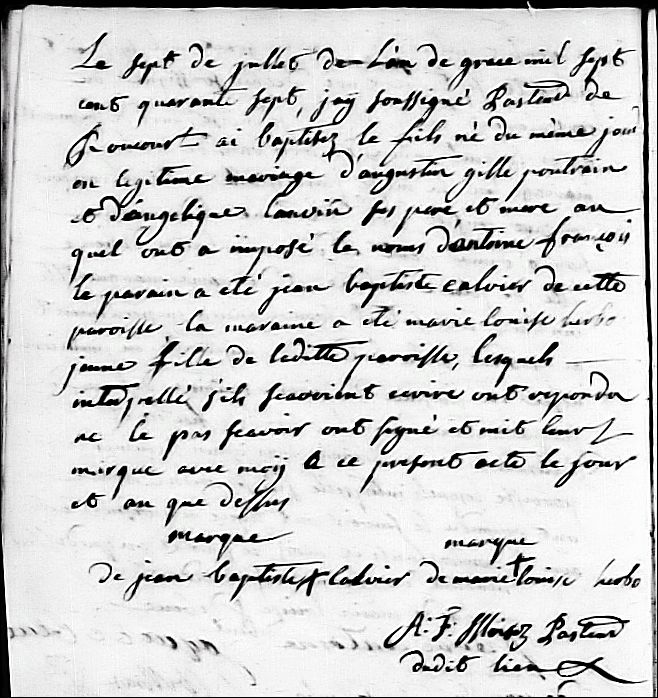 Le sept de jullet de L'an de grace mil sept
cent quarante sept, jay soussigné Pasteur de
ai baptisez le fils né du même jour
en legitime mariage d'augustin gille poutrain
et d'angelique lanvin ses pere et mere au
quel ont a imposé le noms d'antoine françois
le parain a eté jean baptiste calvier de cette
paroisse la maraine a eté marie louise herbo
jeune fille de leditte paroisse, lesquels
interpellé s'ils scavoient ecrire ont repondu
ne le pas scavoir ont signé et mit leur
marque avec moy a ce present acte le jour
et an que dessus
marque marque
de jean baptiste calvier de marie louise herbo
A: F: Pasteur
dudit lieu